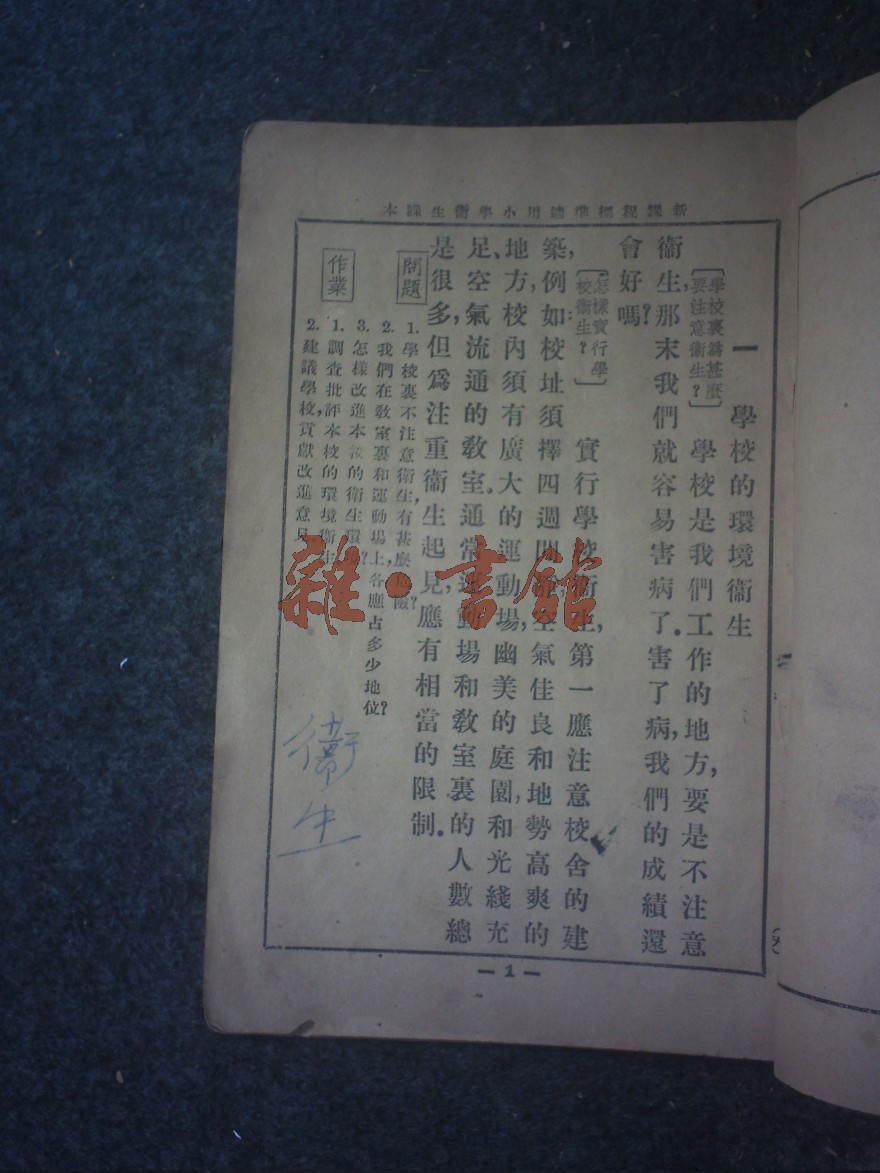 新課程標準適用小學衞生課本
一　學校的環境衞生
〔學校裏爲甚麽要注意衞生?〕學校是我們工作的地方,要是不注意
衞生,那末我們就容易害病了.害了病,我們的成績還
會好嗎?
〔怎樣實行學校衞生?〕實行學校衞生,第一應注意校舍的建
築,例如:校址須擇四週閒空氣佳良和地勢高爽的
地方,校內須有廣大的運動場,幽美的庭園,和光綫充
足、空氣流通的敎室.通常運動場和敎室裏的人數總
是很多,但爲注重衞生起見,應有相當的限制.
問題
1. 學校裏不注意衞生,有甚麽危險?
2. 我們在敎室裏和運動場上,各應占多少地位?
3. 怎樣改進本校的衞生環境?
作業
1. 調查批評本校的環境衞生
2. 建議學校,貢獻改進意見
衞生
雜·書館
— 1 —